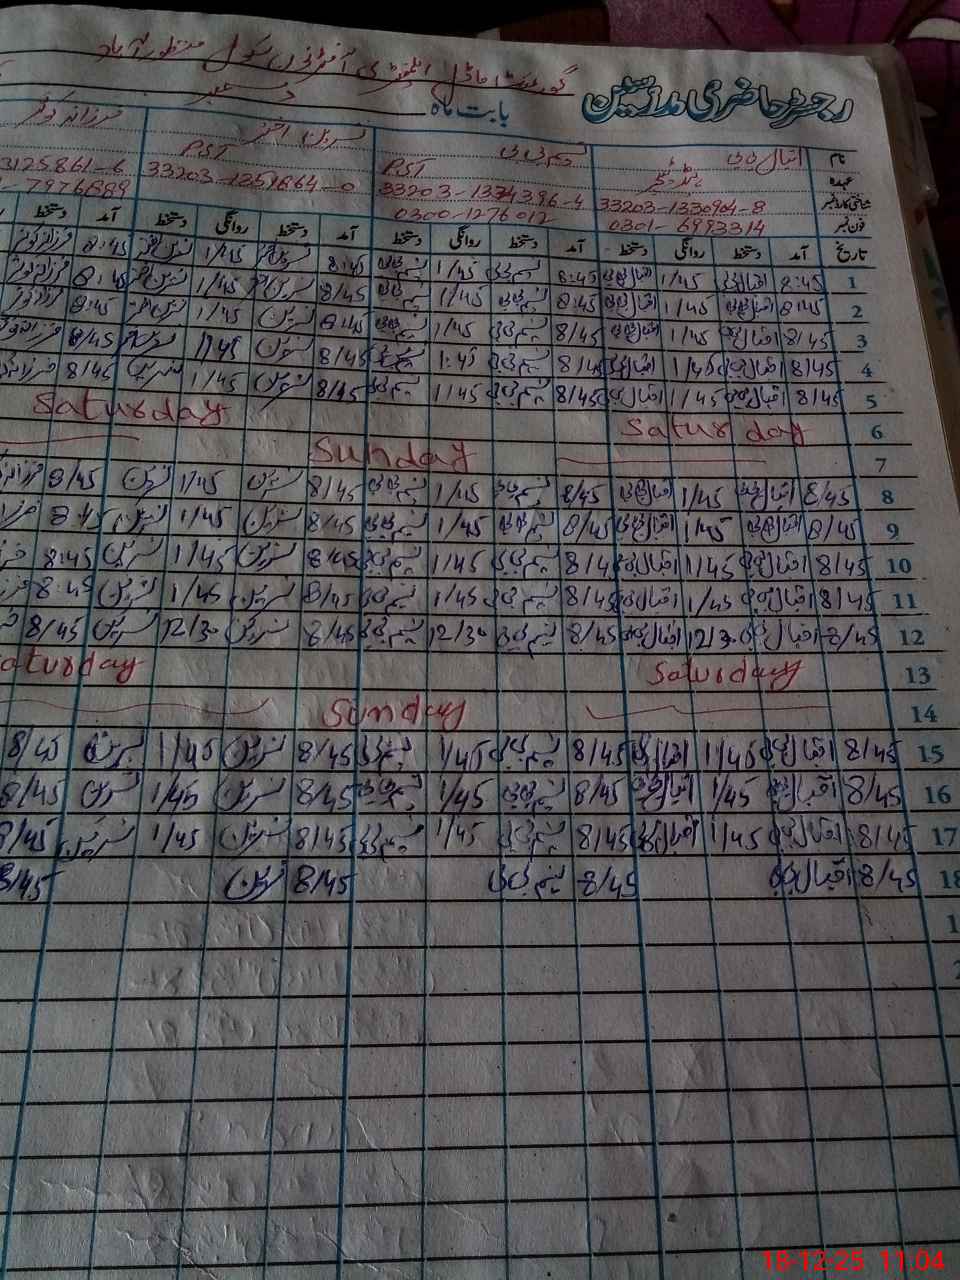 گورنمنٹ ماڈل ایلیمنٹری آفٹرنون سکول منظور آباد
رجسٹر حاضری مدرسین بابت ماہ دسمبر
نام اقبال بی بی نسیم بی بی نسرین اختر فرزانہ کوثر
عہدہ ہیڈ ٹیچر PST PST
شناختی کارڈ نمبر 33203-1330904-8 33203-1334396-4 33203-1351864-0 3125861-6
فون نمبر 0301-6993314 0300-1276012 7976889
تاریخ آمد دستخط روانگی دستخط آمد دستخط روانگی دستخط آمد دستخط روانگی دستخط آمد دستخط
1 8:45 اقبال بی بی 1/45 اقبال بی بی 8:45 نسیم بی بی 1/45 نسیم بی بی 8:45 نسرین اختر 1/45 نسرین اختر 8:45 فرزانہ کوثر
2 8/45 اقبال بی بی 1/45 اقبال بی بی 8:45 نسیم بی بی 1/45 نسیم بی بی 8/45 نسرین اختر 1/45 نسرین اختر 8:45 فرزانہ کوثر
3 8/45 اقبال بی بی 1/45 اقبال بی بی 8/45 نسیم بی بی 1/45 نسیم بی بی 8:45 نسرین 1/45 نسرین اختر 8:45 فرزانہ کوثر
4 8/45 اقبال بی بی 1/45 اقبال بی بی 8/45 نسیم بی بی 1:45 نسیم بی بی 8/45 نسرین 1/45 نسرین 8/45 فرزانہ کوثر
5 8/45 اقبال بی بی 1/45 اقبال بی بی 8/45 نسیم بی بی 1/45 نسیم بی بی 8/45 نسرین 1/45 نسرین 8/45
6 Saturday Saturday
7 Sunday
8 8/45 اقبال بی بی 1/45 اقبال بی بی 8/45 نسیم بی بی 1/45 نسیم بی بی 8/45 نسرین 1/45 نسرین 8/45
9 8/45 اقبال بی بی 1/45 اقبال بی بی 8/45 نسیم بی بی 1/45 نسیم بی بی 8/45 نسرین 1/45 نسرین 8:45
10 8/45 اقبال بی بی 1/45 اقبال بی بی 8/45 نسیم بی بی 1/45 نسیم بی بی 8/45 نسرین 1/45 نسرین 8:45
11 8/45 اقبال بی بی 1/45 اقبال بی بی 8/45 نسیم بی بی 1/45 نسیم بی بی 8/45 نسرین 1/45 نسرین 8:45
12 8/45 اقبال بی بی 12/30 اقبال بی بی 8/45 نسیم بی بی 12/30 نسیم بی بی 8/45 نسرین 12/30 نسرین 8/45
13 Saturday Saturday
14 Sunday
15 8/45 اقبال بی بی 1/45 اقبال بی بی 8/45 نسیم بی بی 1/45 نسیم بی بی 8/45 نسرین 1/45 نسرین 8/45
16 8/45 اقبال بی بی 1/45 اقبال بی بی 8/45 نسیم بی بی 1/45 نسیم بی بی 8/45 نسرین 1/45 نسرین 8/45
17 8/45 اقبال بی بی 1/45 اقبال بی بی 8/45 نسیم بی بی 1/45 نسیم بی بی 8/45 نسرین 1/45 نسرین 8/45
18 8/45 اقبال بی بی 8/45 نسیم بی بی 8/45 نسرین 8/45
18-12-25 11:04